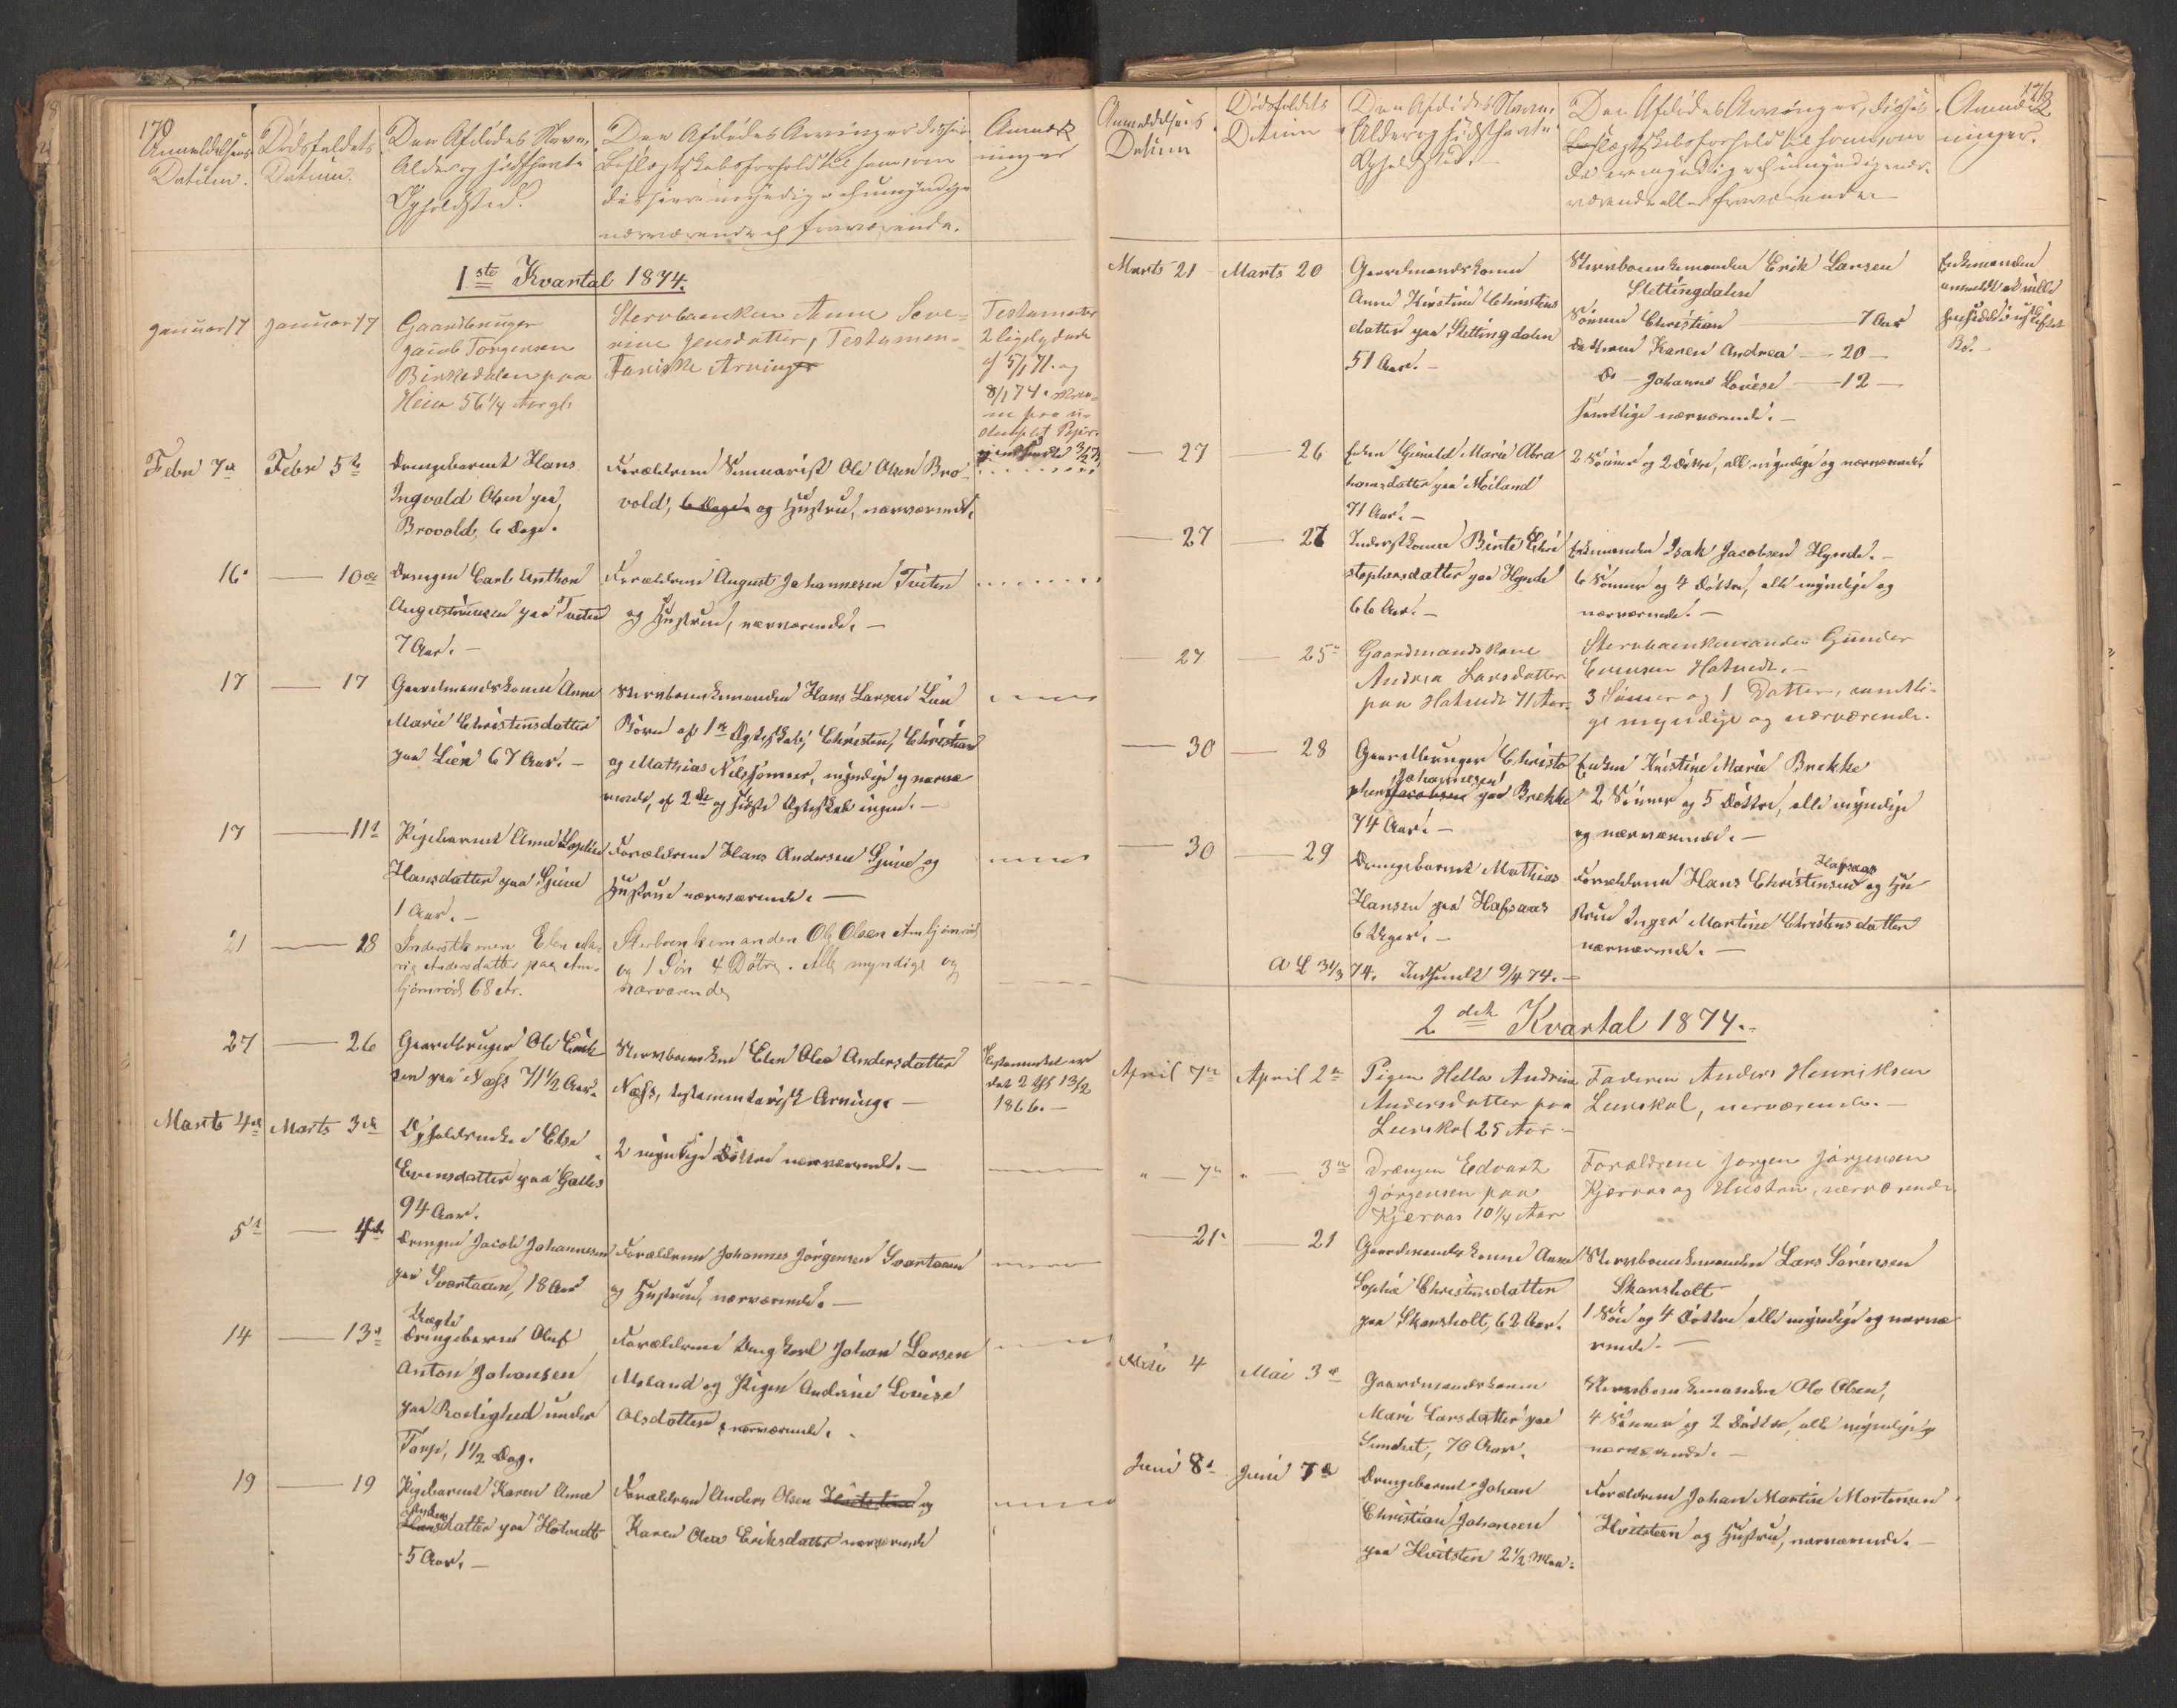 170
Anmeldelsens Datum.
Dødsfaldets Datum.
Den Afdødes Navn,
Alder og sidsthavte
Opholdsted.
Den Afdødes Arvinger disses
Beslægtskabsforhold til ham, om
disse ere myndige el umyndige
nærværende el fraværende.
Anmærk
ninger
1ste Kvartal 1874.
Januar 17 Januar 17
Gaardbruger
Jacob Torgersen
Birkedalen paa
Heia 56 1/4 Aar gl.
Stervboenken Anne Seve=
rine Jensdatter, Testamen=
tariske Arving
Testamenter
2 ligelydende
af 5/1 71. og
8/1 74.
Febr 7de Febr 5te
Drengebarnet Hans
Ingvald Olsen paa
Brovold, 6 Dage.
Forældrene Seminarist Ole Olsen Bro
vold, 6 Dage og Hustru, nærværende.
16. — 10de
Drengen Carl Anthon
Augustinusen paa Tveten
7 Aar. —
Forældrene August Johannesen Tveten
og Hustru, nærværende. —
17 — 17
Gaardmandskonen Anne
Marie Christensdatter
paa Lien 67 Aar. —
Stervboenkemanden Hans Larsen Lien
Børn af 1ste Ægteskab, Christen, Christian
og Mathias Nilssønner, myndige og nærvæ
rende, af 2det og sidste Ægteskab ingen. —
17 — 11te
Pigebarnet Anne Sophie
Hansdatter paa Gjive
1 Aar. —
Forældrene Hans Andersen Gjive og
Hustru nærværende. —
21 — 18
Inderstkonen Elen Ma-
rie Andersdatter paa Am-
bjørnrød 68 Ar.
Sterboenkemanden Ole Olsen Ambjørnrød
og 1 Søn 4 Døtre. Alle myndige og
nærværende
27 — 26
Gaardbruger Ole Erik
sen paa Næss 71 1/2 Aar.
Stervboenken Elen Olea Andersdatter
Næss, testamentarisk Arving. —
Testamentet er
dat 2 13/2
1866. —
Marts 4de Marts 3de
Opholdsenken Else
Evensdatter paa Galles
94 Aar.
2 myndige Døttre nærværende. —
5te — 4de
Drengen Jacob Johannesen
paa Svartaaen, 18 Aar
Forældrene Johannes Jørgensen Svartaaen
og Hustru, nærværende. —
14 — 13de
Uægte
Drengebarnet Oluf
Anton Johansen
paa Roelighed under
Tarp, 1 1/2 Dag.
Forældrene Ungkarl Johan Larsen
Moland og Pigen Andrine Lovise
Olsdatter, nærværende.
19 — 19
Pigebarnet Karen Anne
Anders
Hansdatter paa Holtvedt
5 Aar. —
Forældrene Anders Olsen og
Karen Olea Eriksdatter nærværende
Anmeldelsens
Datum
Dødsfaldets
Datum
Den Afdødes Navn,
Alder og sidsthavte
Opholdsted. —
Den Afdødes Arvinger, disses
Beslægtskabsforhold til ham, om
de ere myndige el umyndige nær-
værende eller fraværende
Anmærk
ninger.
Marts 21 Marts 20
Gaardmandskonen
Anne Kirstine Christens
datter paa Slettingdalen
51 Aar. —
Stervboenkemanden Erik Larsen
Slettingdalen
Sønnen Christian — 7 Aar
Datteren Karen Andrea — 20 —
Do — Johanne Lovise — 12 —
samtlige nærværende. —
Enkemanden
anmeldt at ville
hensidde i uskiftet
Bo. —
— 27 — 26
Enken Gunild Marie Abra
hamsdatter paa Moiland
71 Aar. —
2 Sønner og 2 Døttre, alle myndige og nærværende
— 27 — 27
Inderstkonen Birte Chri
stophersdatter paa Hynde
66 Aar. —
Enkemanden Isak Jacobsen Hynde. —
6 Sønner og 4 Døttre, alle myndige og
nærværende. —
— 27 — 25de
Gaardmandskone
Andrea Larsdatter
paa Hatvedt 71 Aar.
Stervboenkemanden Gunder
Evensen Hatvedt. —
3 Sønner og 1 Datter, samtli-
ge myndige og nærværende.
— 30 — 28
Gaardbruger Christo
Johannesen
pher Jacobsen paa Brekke
74 Aar. —
Enken Kristine Marie Brekke
2 Sønner og 5 Døttre, alle myndige
og nærværende. —
— 30 — 29
Drengebarnet Mathias
Hansen paa Hafsaas
6 Uger. —
Hafsaas
Forældrene Hans Christensen og Hu
stru Inger Martine Christensdatter
nærværende. —
A L 31/3 74. Indsendt 9/4 74. —
2det Kvartal 1874. —
April 7de April 2de
Pigen Hella Andrine
Andersdatter paa
Lunskal 25 Aar —
Faderen Anders Henriksen
Lunskal, nærværende. —
" — 7de " — 3de
Drengen Edvart
Jørgensen paa
Kjærraas 10 1/4 Aar
Forældrene Jørgen Jørgensen
Kjærraas og Hustru, nærværende
— 21 — 21
Gaardmandskonen Anne
Sophie Christensdatter
paa Skarsholt, 62 Aar.
Stervboenkemanden Lars Sørensen
Skarsholt
1 Søn og 4 Døttre, alle myndige og nærvæ
rende. —
Mai 4 Mai 3de
Gaardmandskonen
Mari Larsdatter paa
Sundset, 70 Aar.
Stervboenkemanden Ole Olsen,
4 Sønner og 2 Døttre, alle myndige og
nærværende. —
Juni 8de Juni 7de
Drengebarnet Johan
Christian Johansen
paa Hvitsten 2 1/2 Maa:
Forældrene Johan Martin Mortensen
Hvitsten og Hustru, nærværende. —